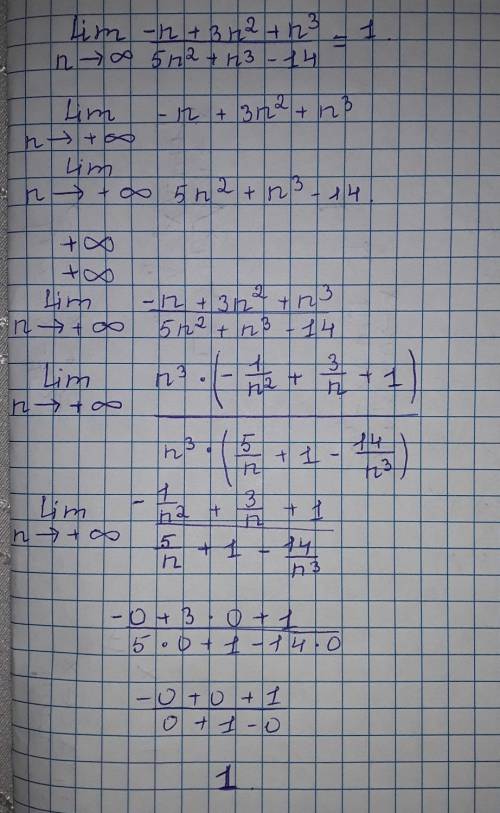 Lim -n + 3n² + n³
n → ∞ 5n² + n³ - 14 = 1.
Lim -n + 3n² + n³
n → +∞
Lim
n → +∞ 5n² + n³ - 14.
+∞
+∞
Lim -n + 3n² + n³
n → +∞ 5n² + n³ - 14
Lim n³ · (- 1/n² + 3/n + 1)
n → +∞
n³ · (5/n + 1 - 14/n³)
Lim - 1/n² + 3/n + 1
n → +∞ 5/n + 1 - 14/n³
-0 + 3 · 0 + 1
5 · 0 + 1 - 14 · 0
-0 + 0 + 1
0 + 1 - 0
1.